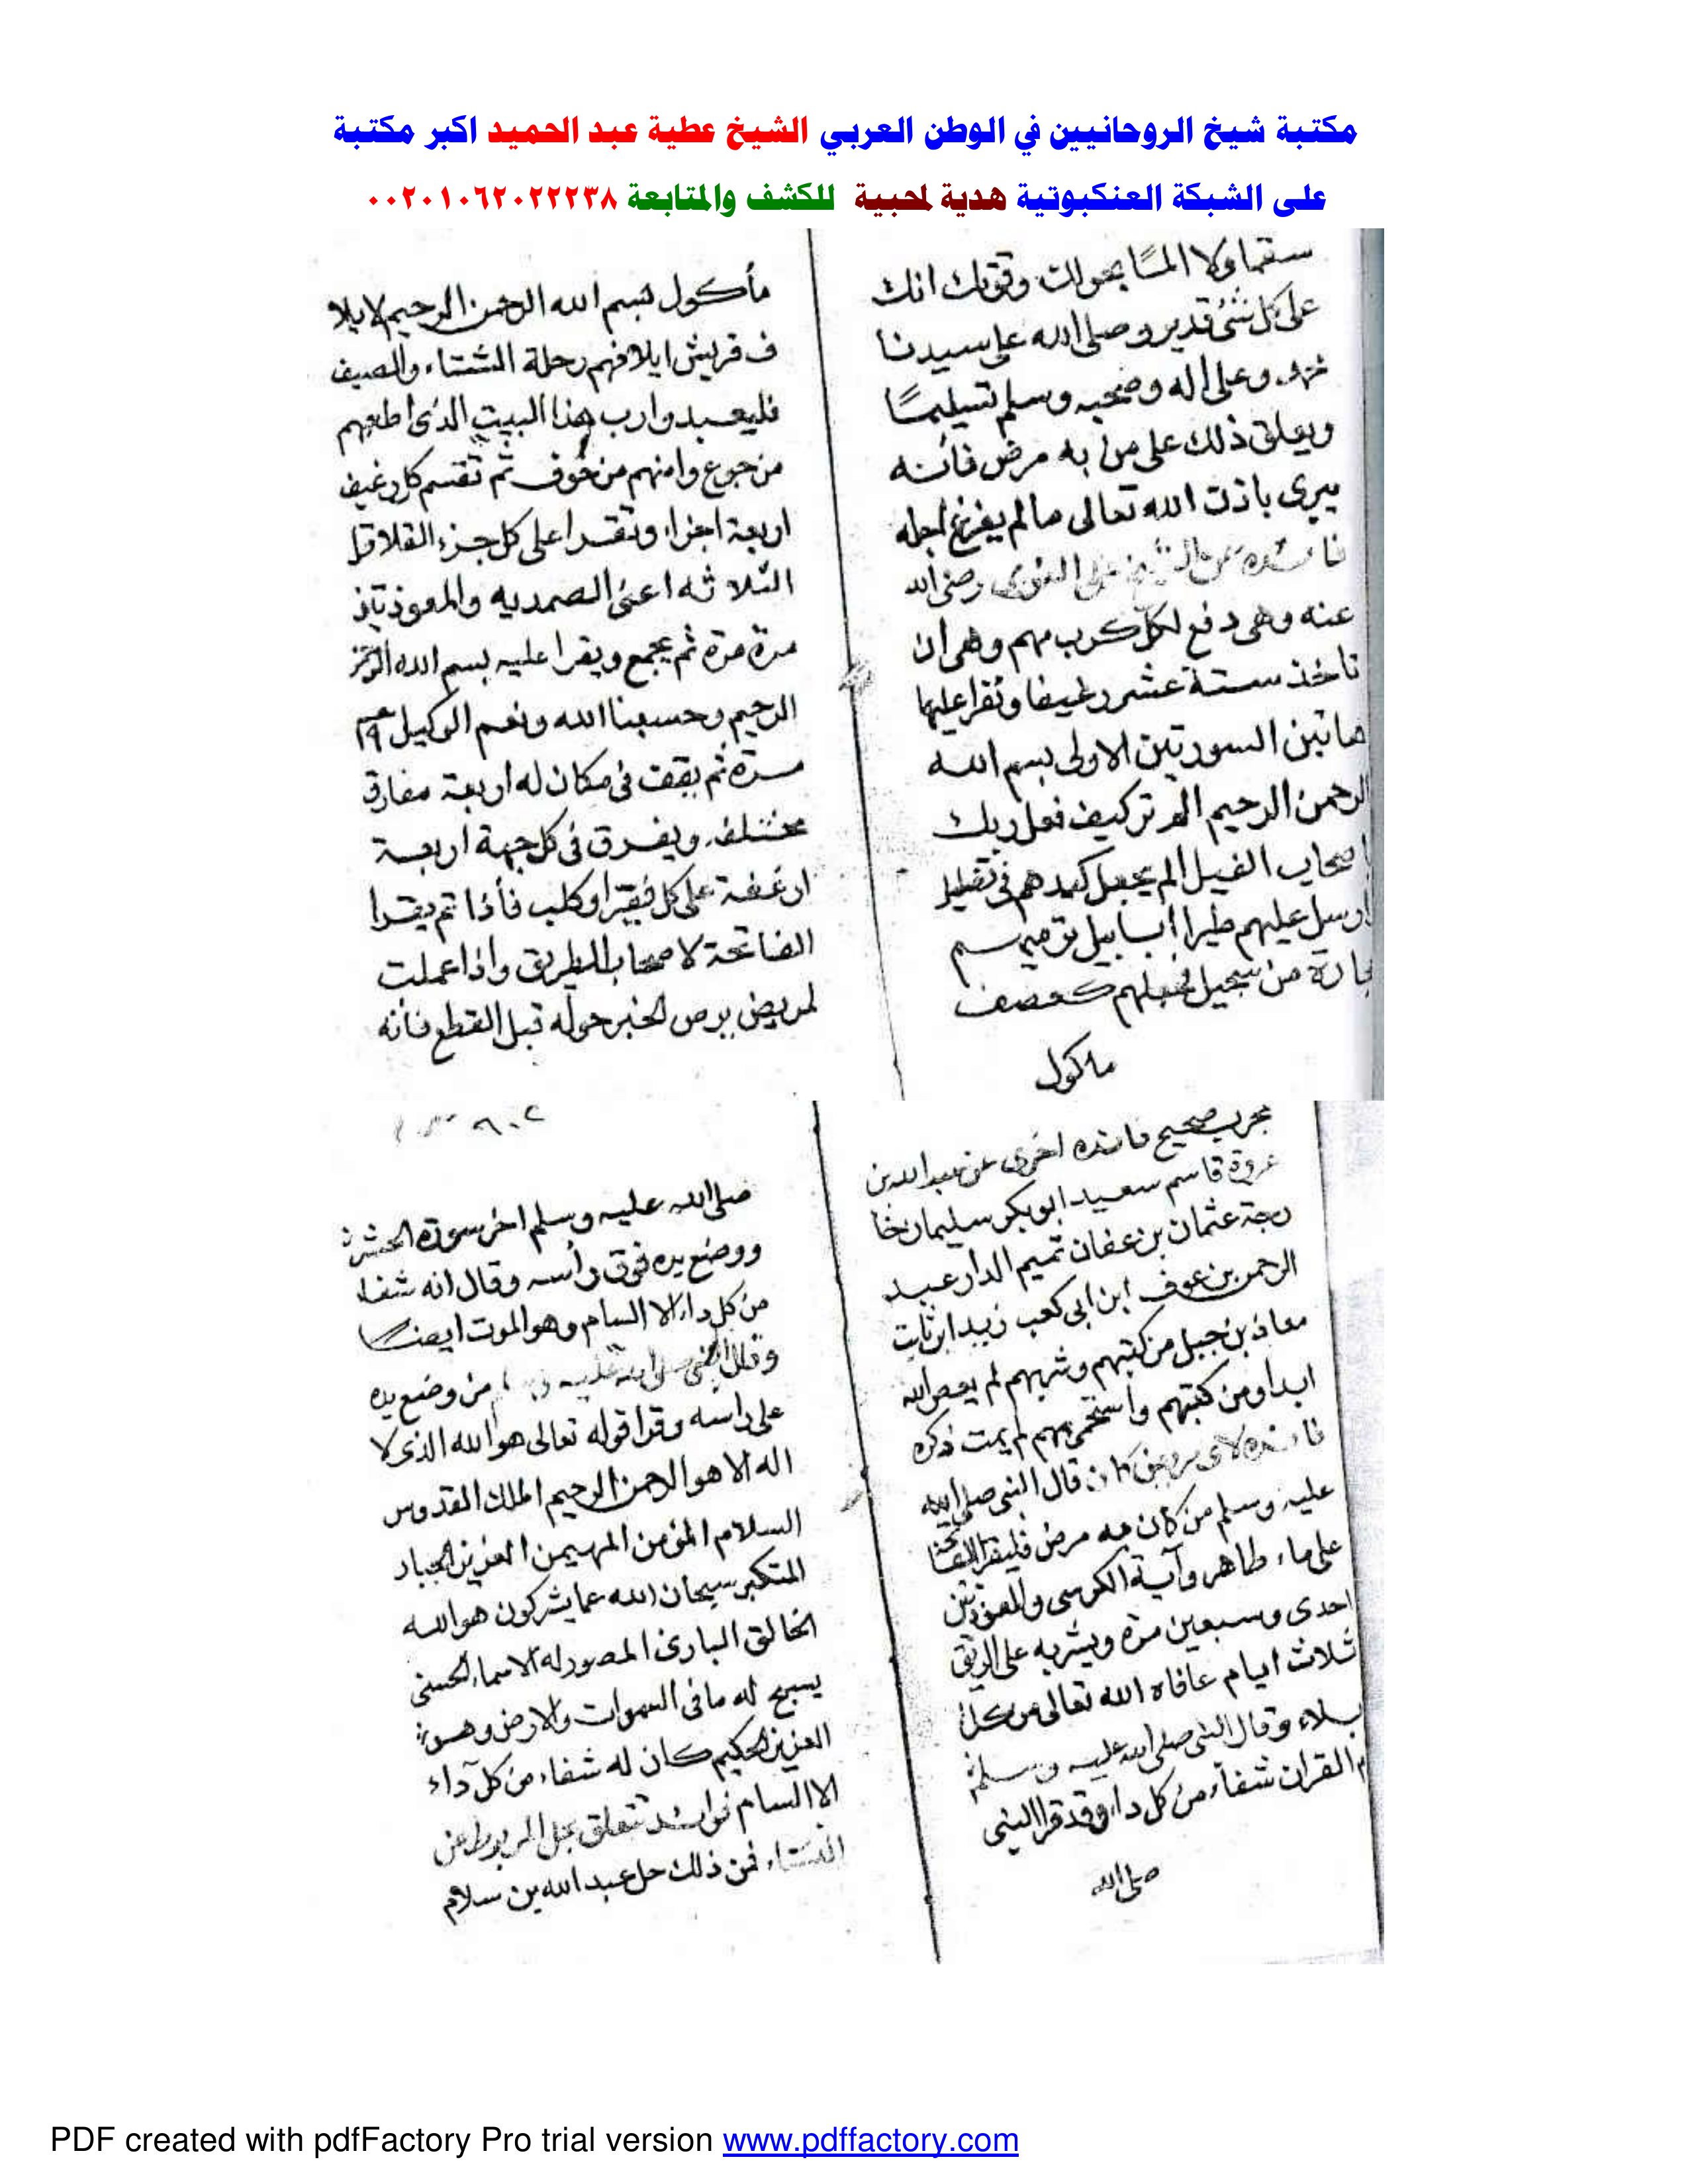 مكتبة شيخ الروحانيين في الوطن العربي الشيخ عطية عبد الحميد اكبر مكتبة
على الشبكة العنكبوتية هدية لمحبية للكشف والمتابعة ٠٠٢٠١٠٦٢٠٢٢٢٣٨
سقما ولا المًا بحولك وقوتك انك
على كل شئ قدير وصلى الله على سيدنا
محمد وعلى اله وصحبه وسلم تسليمًا
ويعلق ذلك على من به مرض فأنه
يبرى باذن الله تعالى مالم يفرغ اجله
فائده عن الشيخ على رضى الله
عنه وهى دفع لكل كرب مهم وهى ان
تاخذ ستة عشر رغيفا وتقرا عليها
هاتين السورتين الاولى بسم الله
الرحمن الرحيم الم تر كيف فعل ربك
باصحاب الفيل الم يجعل كيدهم فى تضليل
وارسل عليهم طيرا ابابيل ترميهم
بحجارة من سجيل فجعلهم كعصف
ماكول
مأكول بسم الله الرحمن الرحيم لايلا
ف قريش ايلافهم رحلة الشتاء والصيف
فليعبدوا رب هذا البيت الذى اطعمهم
من جوع وامنهم من خوف ثم تقسم كل رغيف
اربعة اجزاء وتقرا على كل جزء القلاقل
الثلاثه اعنى الصمديه والمعوذتين
مرة مرة ثم يجمع ويقرا عليه بسم الله الرحمن
الرحيم وحسبنا الله ونعم الوكيل
مرة ثم يقف فى مكان له اربعة مفارق
مختلفه ويفرق فى كل جهة اربعة
ارغفة على كل فقير او كلب فأذا تم يقرا
الفاتحة لاصحاب الطريق واذا عملت
لمريض يرص الخبز حوله قبل القطع فانه
مجرب صحيح فائده اخرى عن عبد الله بن
عروة قاسم سعيد ابوبكر سليمان خا
رجة عثمان بن عفان تميم الدار عبد
الرحمن بن عوف ابن ابى كعب زيد ابن ثابت
معاذ بن جبل من كتبهم وشربهم لم يعص الله
ابدا ومن كتبهم واستحم بهم لم يمت ذكره
فائده لاى مرض كان قال النبى صلى الله
عليه وسلم من كان به مرض فليقرا الفاتحة
على ماء طاهر وآية الكرسى والمعوذتين
احدى وسبعين مرة ويشربه على الريق
ثلاث ايام عافاه الله تعالى من كل
بلاء وقال النبى صلى الله عليه وسلم
القران شفاء من كل داء وقد قرا النبى
صلى الله
صلى الله عليه وسلم اخر سورة الحشر
ووضع يده فوق رأسه وقال انه شفاء
من كل داء الا السام وهو الموت ايضا
وقال النبى صلى الله عليه من وضع يده
على راسه وقرا قوله تعالى هو الله الذى لا
اله الا هو الرحمن الرحيم الملك القدوس
السلام المؤمن المهيمن العزيز الجبار
المتكبر سبحان الله عما يشركون هو الله
الخالق البارئ المصور له الاسماء الحسنى
يسبح له ما فى السموات والارض وهو
العزيز الحكيم كان له شفاء من كل داء
الا السام فوائد تتعلق بحل المربوط عن
النساء فمن ذلك حل عبد الله بن سلام
PDF created with pdfFactory Pro trial version www.pdffactory.com